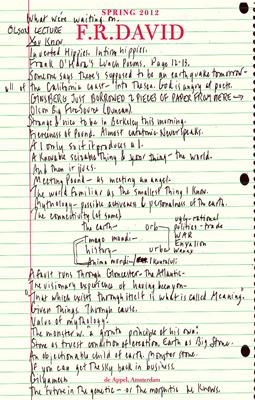 SPRING 2012
What we're waiting on.
F.R.DAVID
OLSON LECTURE
You Know
Inverted Hippies. Intro hippies.
Frank O'Hara's Lunch Poems. Page 12-13.
Someone says there's supposed to be an earthquake tomorrow-
all of the California coast- Into the sea. God is angry at poets.
GINSBERG JUST BORROWED 2 PIECES OF PAPER FROM HERE →
Olson By Firesource (Duncan)
Strange & nice to be in Berkeley this morning.
Fierceness of Pound. Almost catatonic. Never speaks.
A 1 only. So it produces a 1.
A Knowable seizable Thing & your thing- the world.
And then it goes.
Meeting Pound- as meeting an angel-
The world familiar as the smallest thing I know.
Mythology- possible activeness & personalness of the earth.
The connectivity (of same)
the earth- orb
ugly-rational
politics-trade
Imago mundi-
WAR
history- urbe
Enyalion
Anima mundi-
A fault runs through Gloucester- The Atlantic-
The visionary experience of having become-
"That which exists through itself is what is called Meaning."
Given Things. Through cause.
Value of mythology.
The monster w. a growth principle of his own.
Stone as truest condition of creation. Earth as Big Stone.
An objectionable child of earth. Monster stone.
If you can get the sky back in business.
de Appel, Amsterdam
Gilgamesh
The future in the genetic- or the morphitic he Knows.